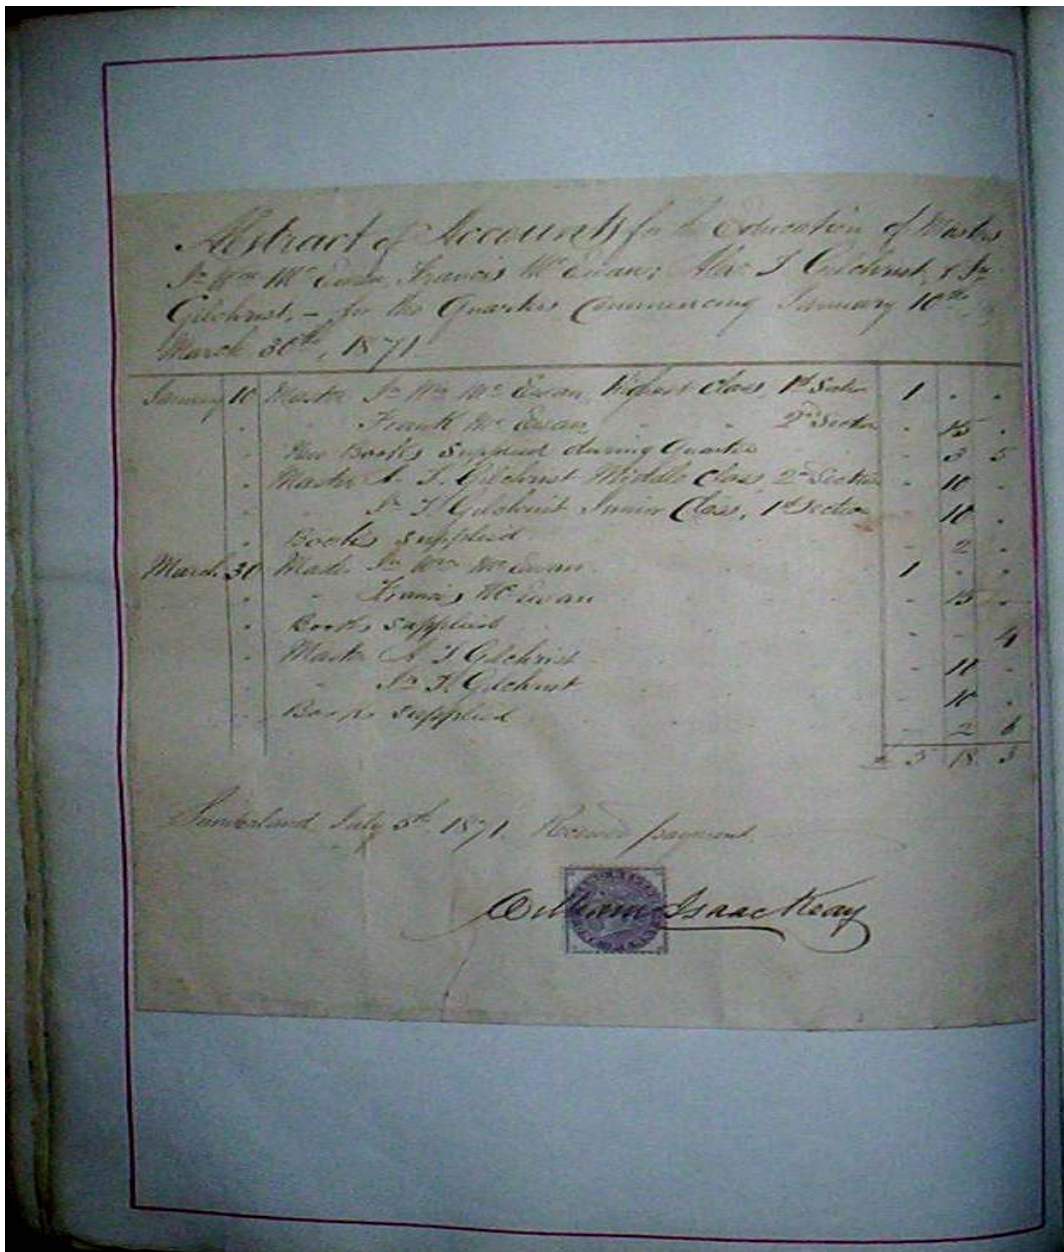 Abstract of Accounts for the Education of Masters
Jn Wm McEwan, Francis McEwan; Alex T Gilchrist, & Jn
Gilchrist, - for the Quarters Commencing January 10th,
March 30th, 1871
January 10 Master Jn Wm McEwan, Highest Class, 1st Section 1 . .
. . Frank McEwan, " " 2nd Section - 15 .
. Books Supplied during Quarter - 3 5
. Master A. T. Gilchrist Middle Class 2nd Section - 10 .
. . Jn T. Gilchrist Junior Class, 1st Section - 10 .
. Books Supplied - 2 .
March 31 Mast. Jn Wm McEwan 1 . .
. . Francis McEwan - 15 .
. Books Supplied - - 4
. Master A. T. Gilchrist - 10 .
. . Jn T. Gilchrist - 10 .
. Books Supplied - 2 6
£ 5 18 3
Sunderland July 5th 1871. Received payment.
William Isaac Keay